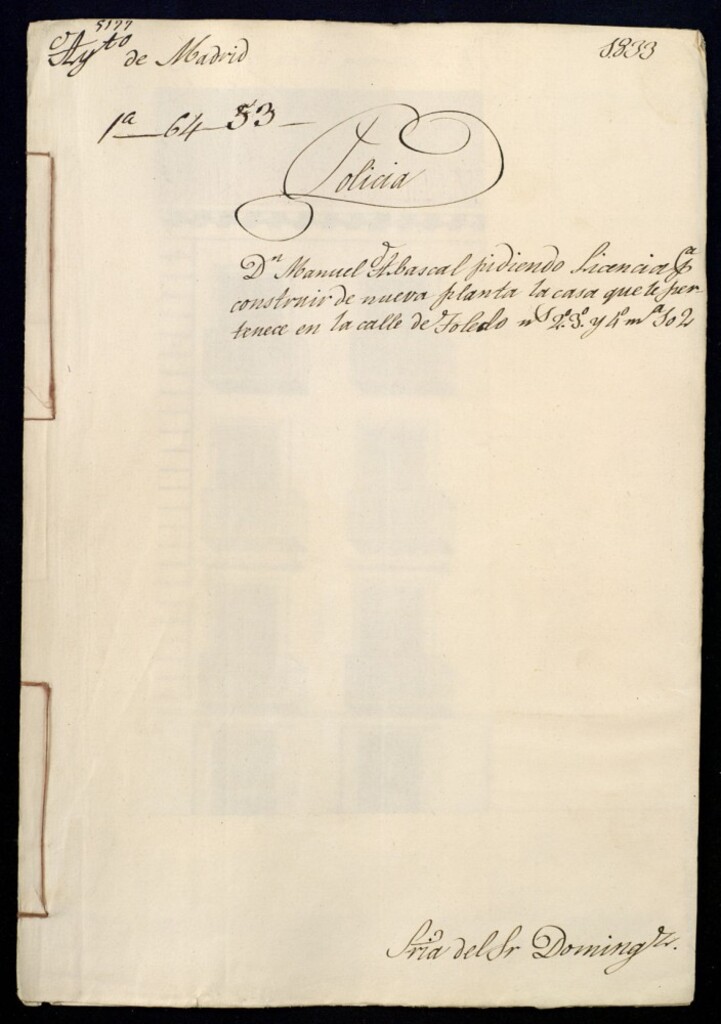 5177
Ayto de Madrid
1833
1a 64 53
Policia
Dn Manuel Abascal pidiendo licencia pa
construir de nueva planta la casa que le per-
tenece en la calle de Toledo ns 2º. 3º. y 4º ma
Sria del Sr Domingz.